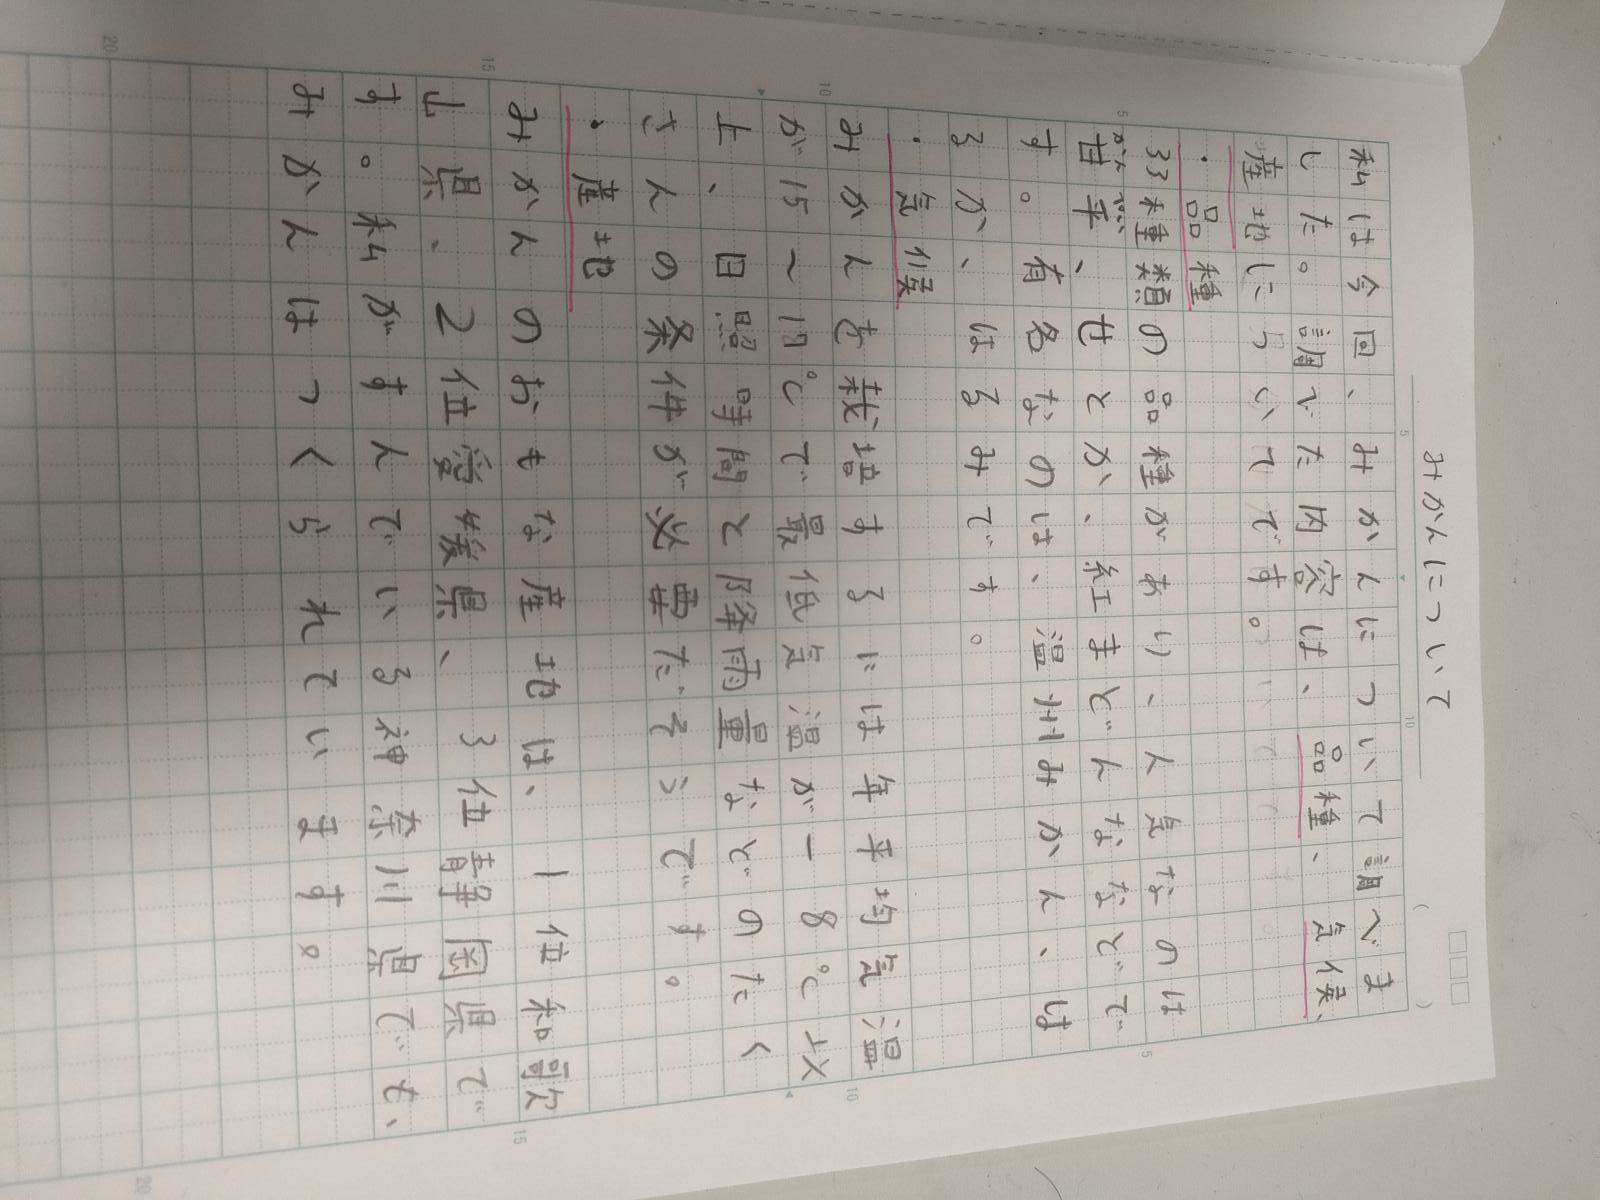 みかんについて
私は今回、みかんについて調べま
した。調べた内容は、品種、気候、
産地についてです。
・品種
33種類の品種があり、人気なのは
甘平、せとか、紅まどんななどで
す。有名なのは、温州みかん、は
るか、はるみです。
・気候
みかんを栽培するには年平均気温
が15〜18℃で最低気温が-8℃以
上、日照時間と降雨量などのたく
さんの条件が必要だそうです。
・産地
みかんのおもな産地は、1位和歌
山県、2位愛媛県、3位静岡県で
す。私がすんでいる神奈川県でも、
みかんはつくられています。